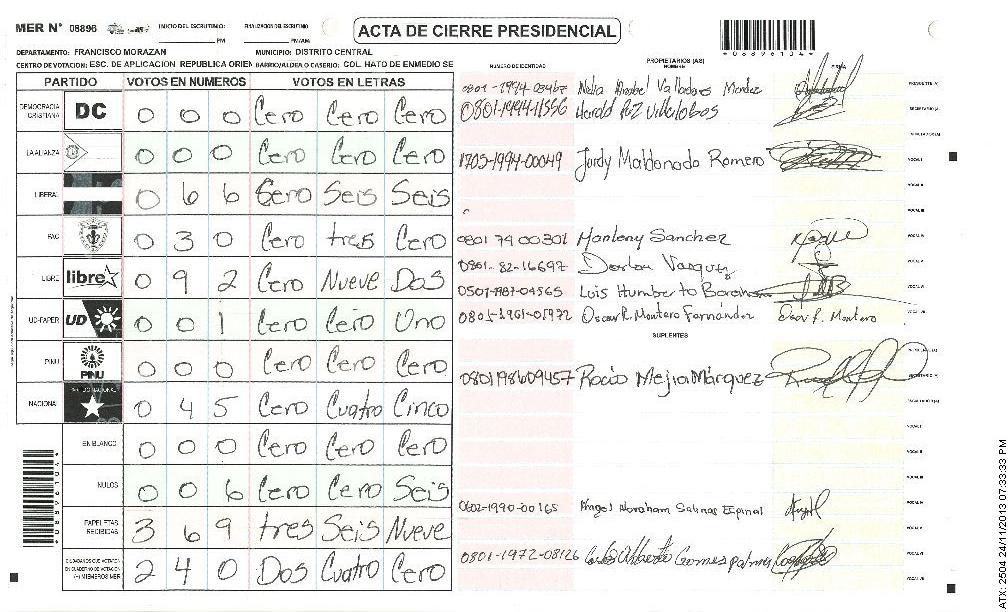 MER N° 08896 INICIO DEL ESCRUTINIO: PM FINALIZACION DEL ESCRUTINIO PM/AM
ACTA DE CIERRE PRESIDENCIAL
*08896104*
DEPARTAMENTO: FRANCISCO MORAZAN MUNICIPIO: DISTRITO CENTRAL
CENTRO DE VOTACION: ESC. DE APLICACION REPUBLICA ORIEN BARRIO/ALDEA O CASERIO: COL. HATO DE ENMEDIO SE
PARTIDO VOTOS EN NUMEROS VOTOS EN LETRAS
DEMOCRACIA CRISTIANA DC 0 0 0 Cero Cero Cero
LA ALIANZA 0 0 0 Cero Cero Cero
LIBERAL 0 6 6 Cero Seis Seis
PAC 0 3 0 Cero tres Cero
LIBRE libre 0 9 2 Cero Nueve Dos
UD-FAPER UD 0 0 1 Cero Cero Uno
PINU PINU 0 0 0 Cero Cero Cero
NACIONAL 0 4 5 Cero Cuatro Cinco
EN BLANCO 0 0 0 Cero Cero Cero
NULOS 0 0 6 Cero Cero Seis
PAPELETAS RECIBIDAS 3 6 9 tres Seis Nueve
CIUDADANOS QUE VOTARON EN CUADERNO DE VOTACION (+) MIEMBROS MER 2 4 0 Dos Cuatro Cero
NUMERO DE IDENTIDAD PROPIETARIOS (AS) NOMBRE FIRMA
Valladares
Harold Paz Villalobos
1703-1994-00049 Jordy Maldonado Romero
0801 79 00301 Marleny Sanchez
0801-82-16697
0501-1987-04565 Luis Humberto
Oscar R. Montero Fernández Oscar R. Montero
SUPLENTES
0801198609457 Rocio Mejia Márquez
0602-1990-00165 Angel Abraham Salinas Espinal Angel
0801-1972-08126 Carlos Alberto Gomes
ATX: 2504 24/11/2013 07:33:33 PM